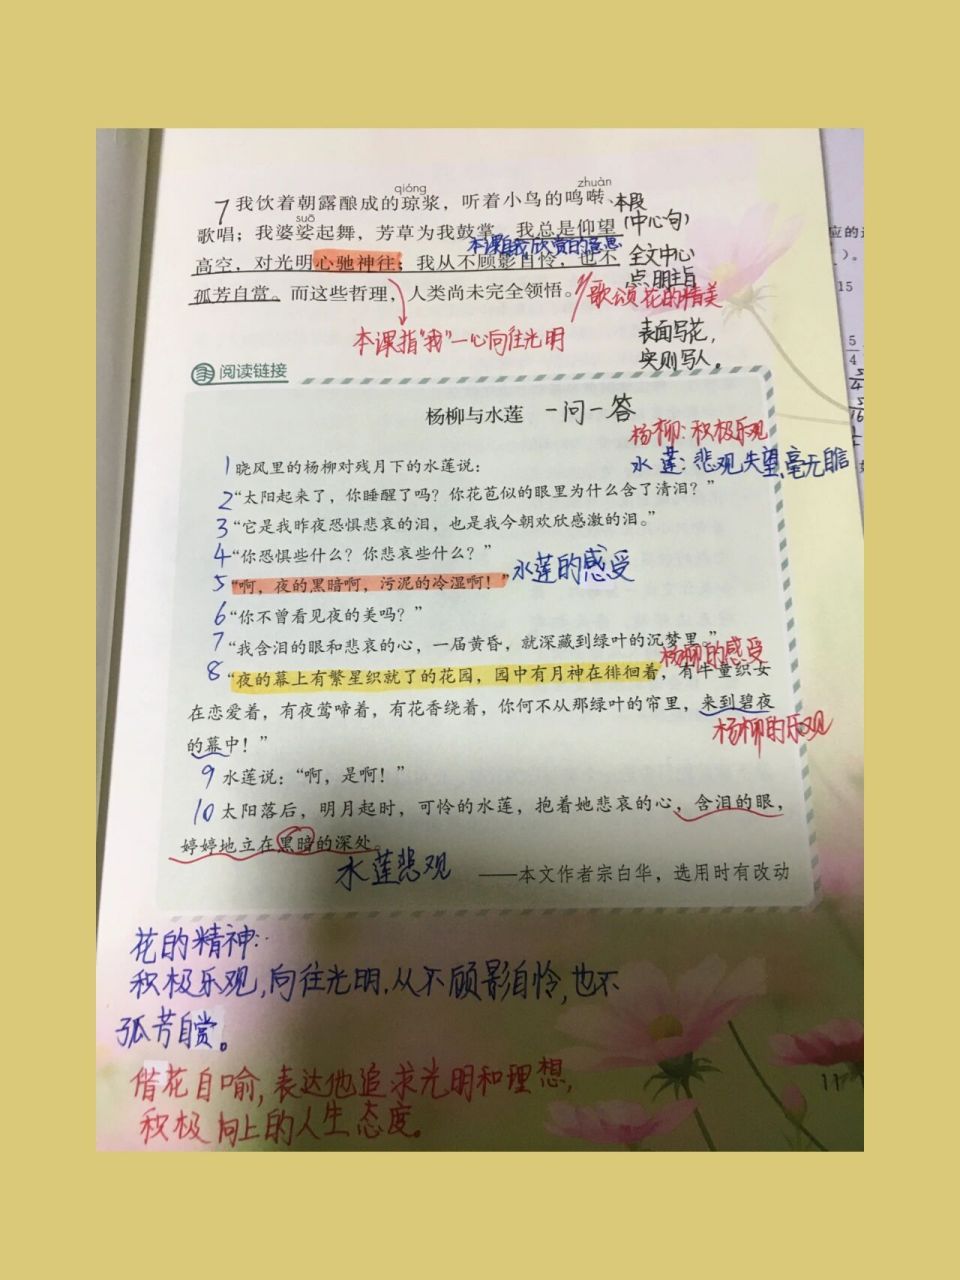 qióng
zhuàn
7 我饮着朝露酿成的琼浆，听着小鸟的鸣啭、
suō
歌唱；我婆娑起舞，芳草为我鼓掌。我总是仰望
高空，对光明心驰神往；我从不顾影自怜，也不
孤芳自赏。而这些哲理，人类尚未完全领悟。
本段
(中心句)
全文中心
点明主旨
本课自我欣赏的意思
歌颂花的精美
本课指"我"一心向往光明
表面写花，
实则写人。
应的
)。
15
5
4
阅读链接
杨柳与水莲 一问一答
杨柳：积极乐观
水莲：悲观失望，毫无自信
1 晓风里的杨柳对残月下的水莲说：
2 “太阳起来了，你睡醒了吗？你花苞似的眼里为什么含了清泪？”
3 “它是我昨夜恐惧悲哀的泪，也是我今朝欢欣感激的泪。”
4 “你恐惧些什么？你悲哀些什么？”
5 “啊，夜的黑暗啊，污泥的冷湿啊！” 水莲的感受
6 “你不曾看见夜的美吗？”
7 “我含泪的眼和悲哀的心，一届黄昏，就深藏到绿叶的沉梦里。”
杨柳的感受
8 “夜的幕上有繁星织就了的花园，园中有月神在徘徊着，有牛童织女
在恋爱着，有夜莺啼着，有花香绕着，你何不从那绿叶的帘里，来到碧夜
的幕中！”
杨柳的乐观
9 水莲说：“啊，是啊！”
10 太阳落后，明月起时，可怜的水莲，抱着她悲哀的心，含泪的眼，
婷婷地立在黑暗的深处。
水莲悲观
——本文作者宗白华，选用时有改动
花的精神：
积极乐观，向往光明，从不顾影自怜，也不
孤芳自赏。
借花自喻，表达他追求光明和理想，
积极向上的人生态度。
11